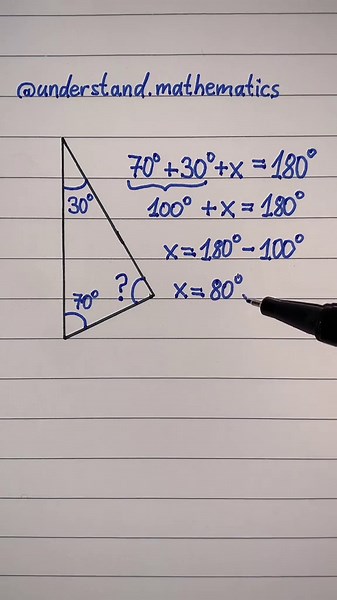 @understand.mathematics
70°+30°+x=180°
30°
100°+x=180°
x=180°-100°
70°
?
x=80°